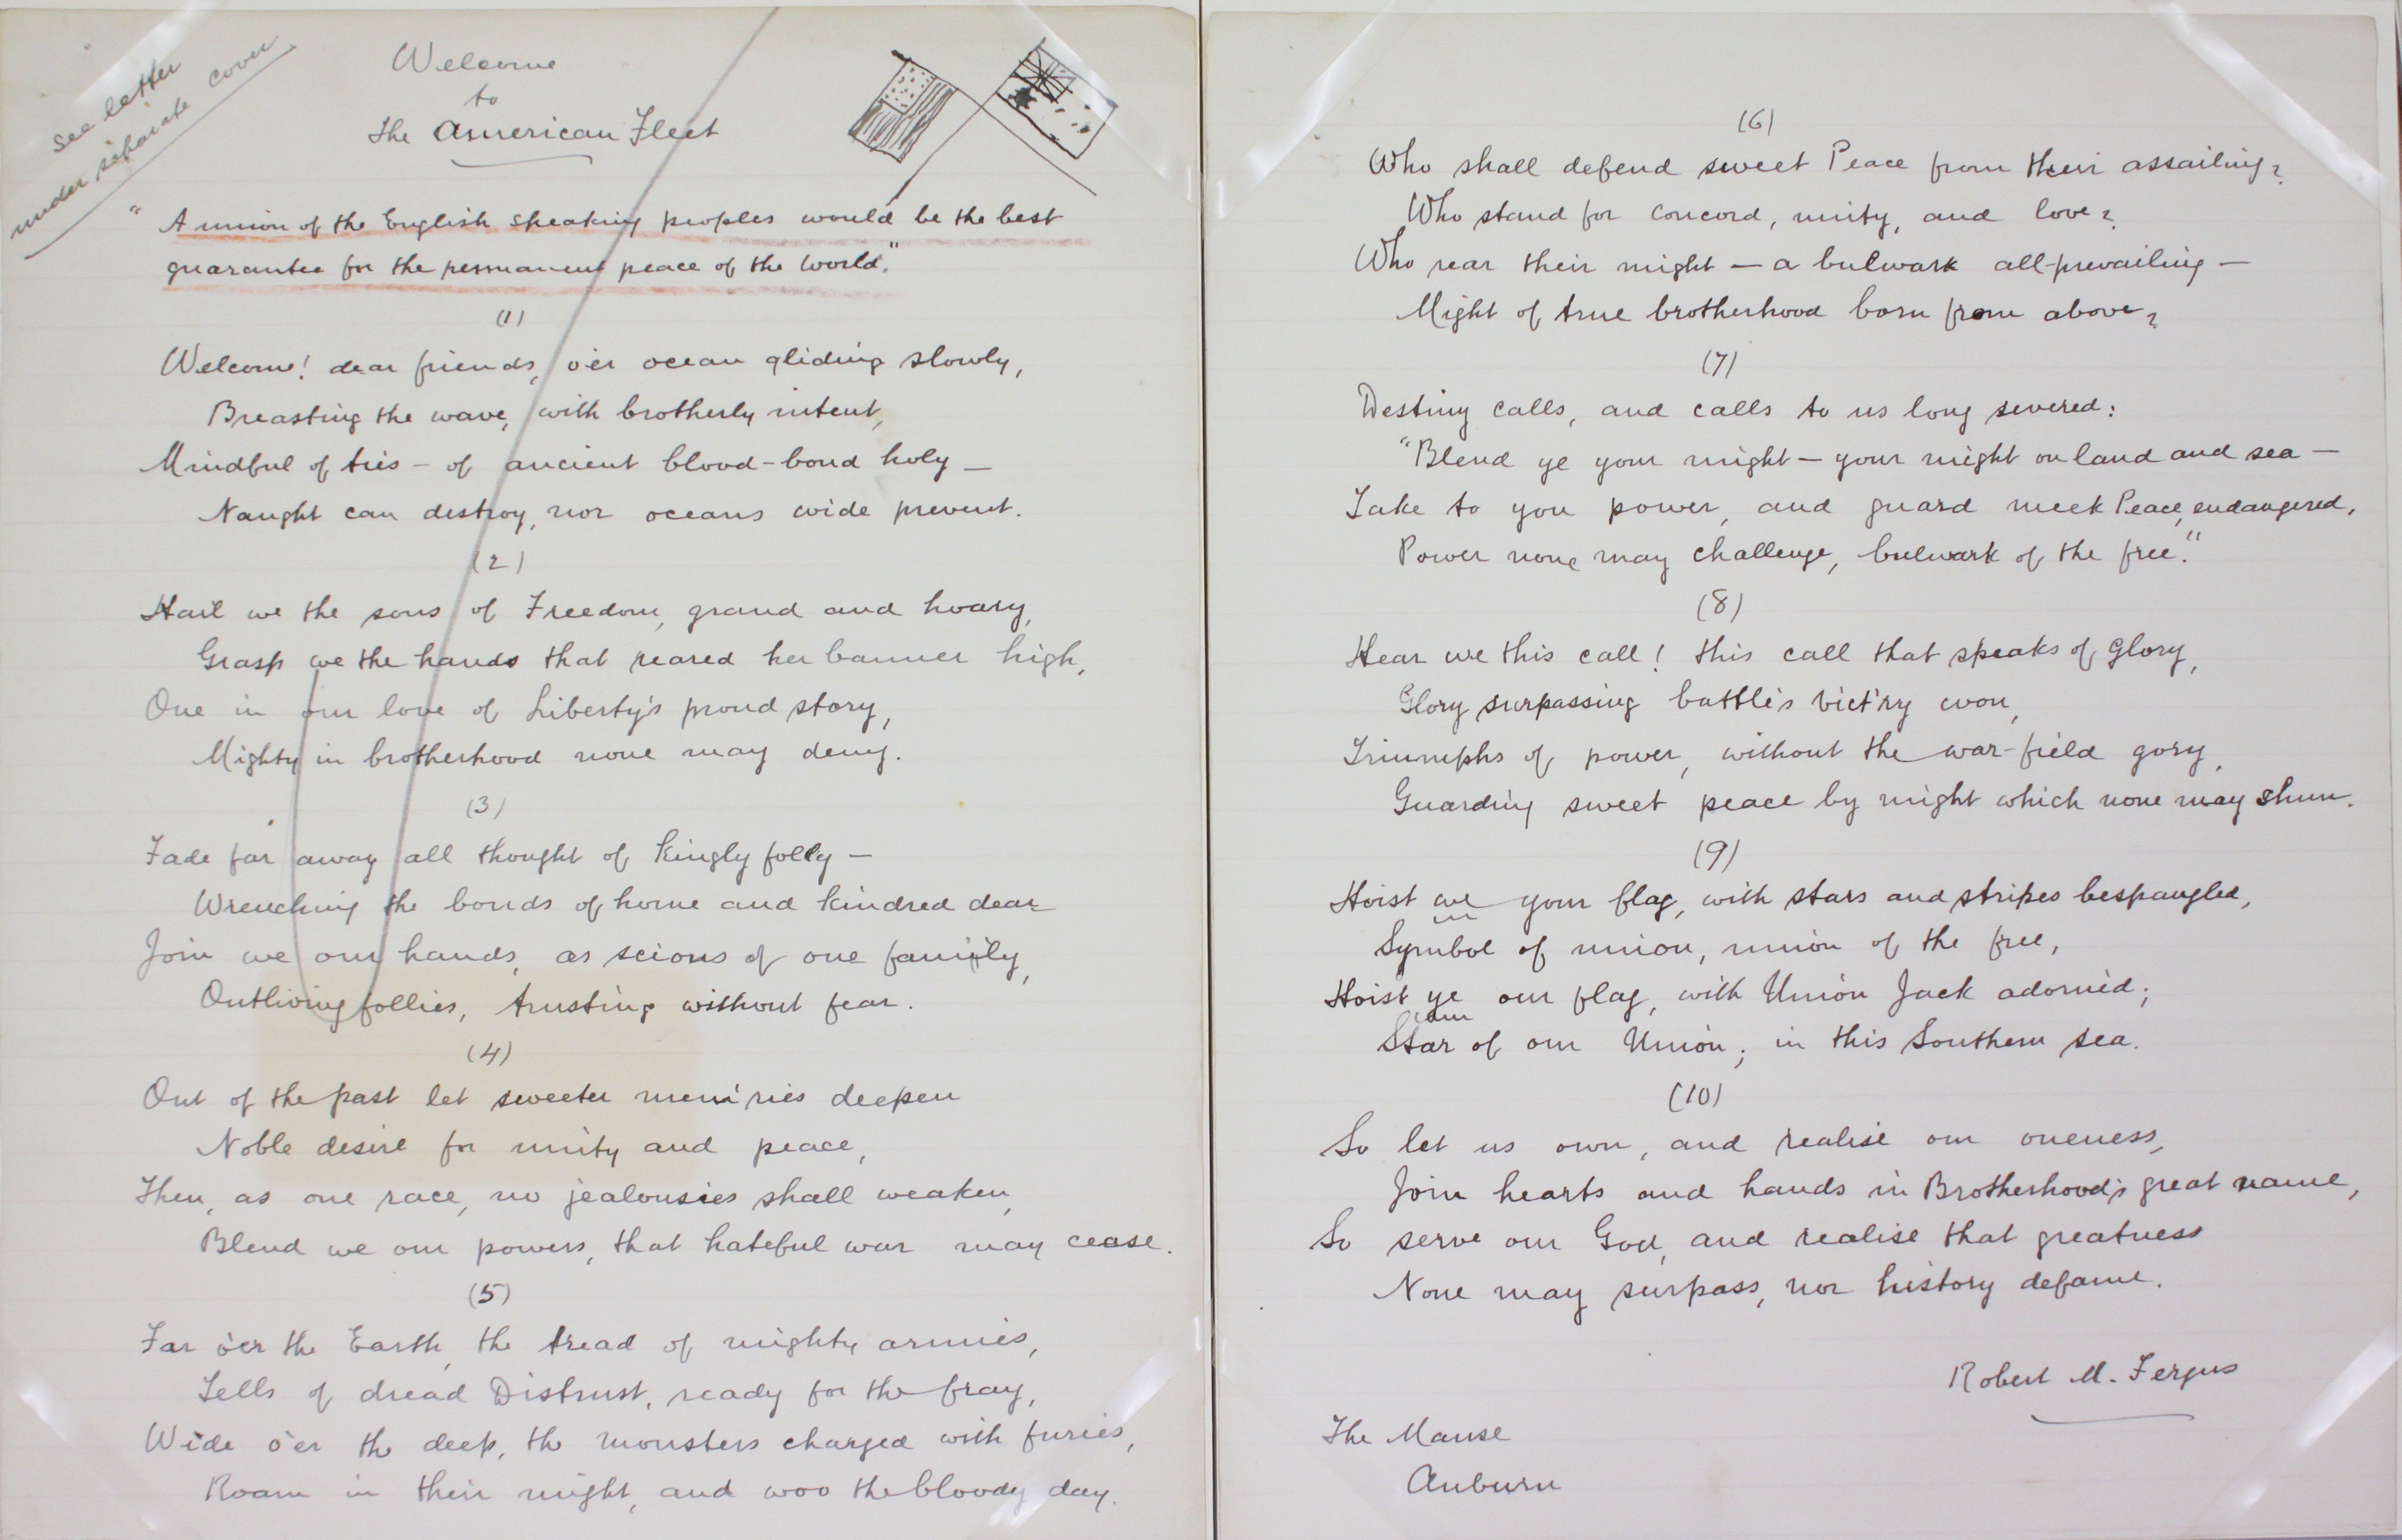 see letter
under separate cover
Welcome
to
The American Fleet
"A union of the English speaking peoples would be the best
guarantee for the permanent peace of the World."
(1)
Welcome! dear friends, o'er ocean gliding slowly,
Breasting the wave, with brotherly intent,
Mindful of ties - of ancient blood-bond holy —
Naught can destroy, nor oceans wide prevent.
(2)
Hail we the sons of Freedom, grand and hoary,
Grasp we the hands that reared her banner high,
One in our love of Liberty's proud story,
Mighty in brotherhood none may deny.
(3)
Fade far away all thought of Kingly folly —
Wrenching the bonds of home and kindred dear
Join we our hands, as scions of one family,
Outliving follies, trusting without fear.
(4)
Out of the past let sweeter mem'ries deepen
Noble desire for unity and peace,
Then, as one race, no jealousies shall weaken,
Blend we our powers, that hateful war may cease.
(5)
Far o'er the Earth, the tread of mighty armies,
Tells of dread Distrust, ready for the fray,
Wide o'er the deep, the monsters charged with furies,
Roam in their might, and woo the bloody day.
(6)
Who shall defend sweet Peace from their assailing?
Who stand for concord, unity, and love?
Who rear their might — a bulwark all-prevailing —
Might of true brotherhood born from above?
(7)
Destiny calls, and calls to us long severed:
"Blend ye your might — your might on land and sea —
Take to you power, and guard meek Peace, endangered,
Power none may challenge, bulwark of the free."
(8)
Hear we this call! this call that speaks of Glory,
Glory surpassing battle's vict'ry won,
Triumphs of power, without the war-field gory,
Guarding sweet peace by might which none may shun.
(9)
Hoist we your flag, with stars and stripes bespangled,
Symbol of union, union of the free,
Hoist ye our flag, with Union Jack adornéd;
Star of our Union; in this Southern sea.
(10)
So let us own, and realise our oneness,
Join hearts and hands in Brotherhood's great name,
So serve our God, and realise that greatness
None may surpass, nor history defame.
Robert M. Fergus
The Manse
Auburn